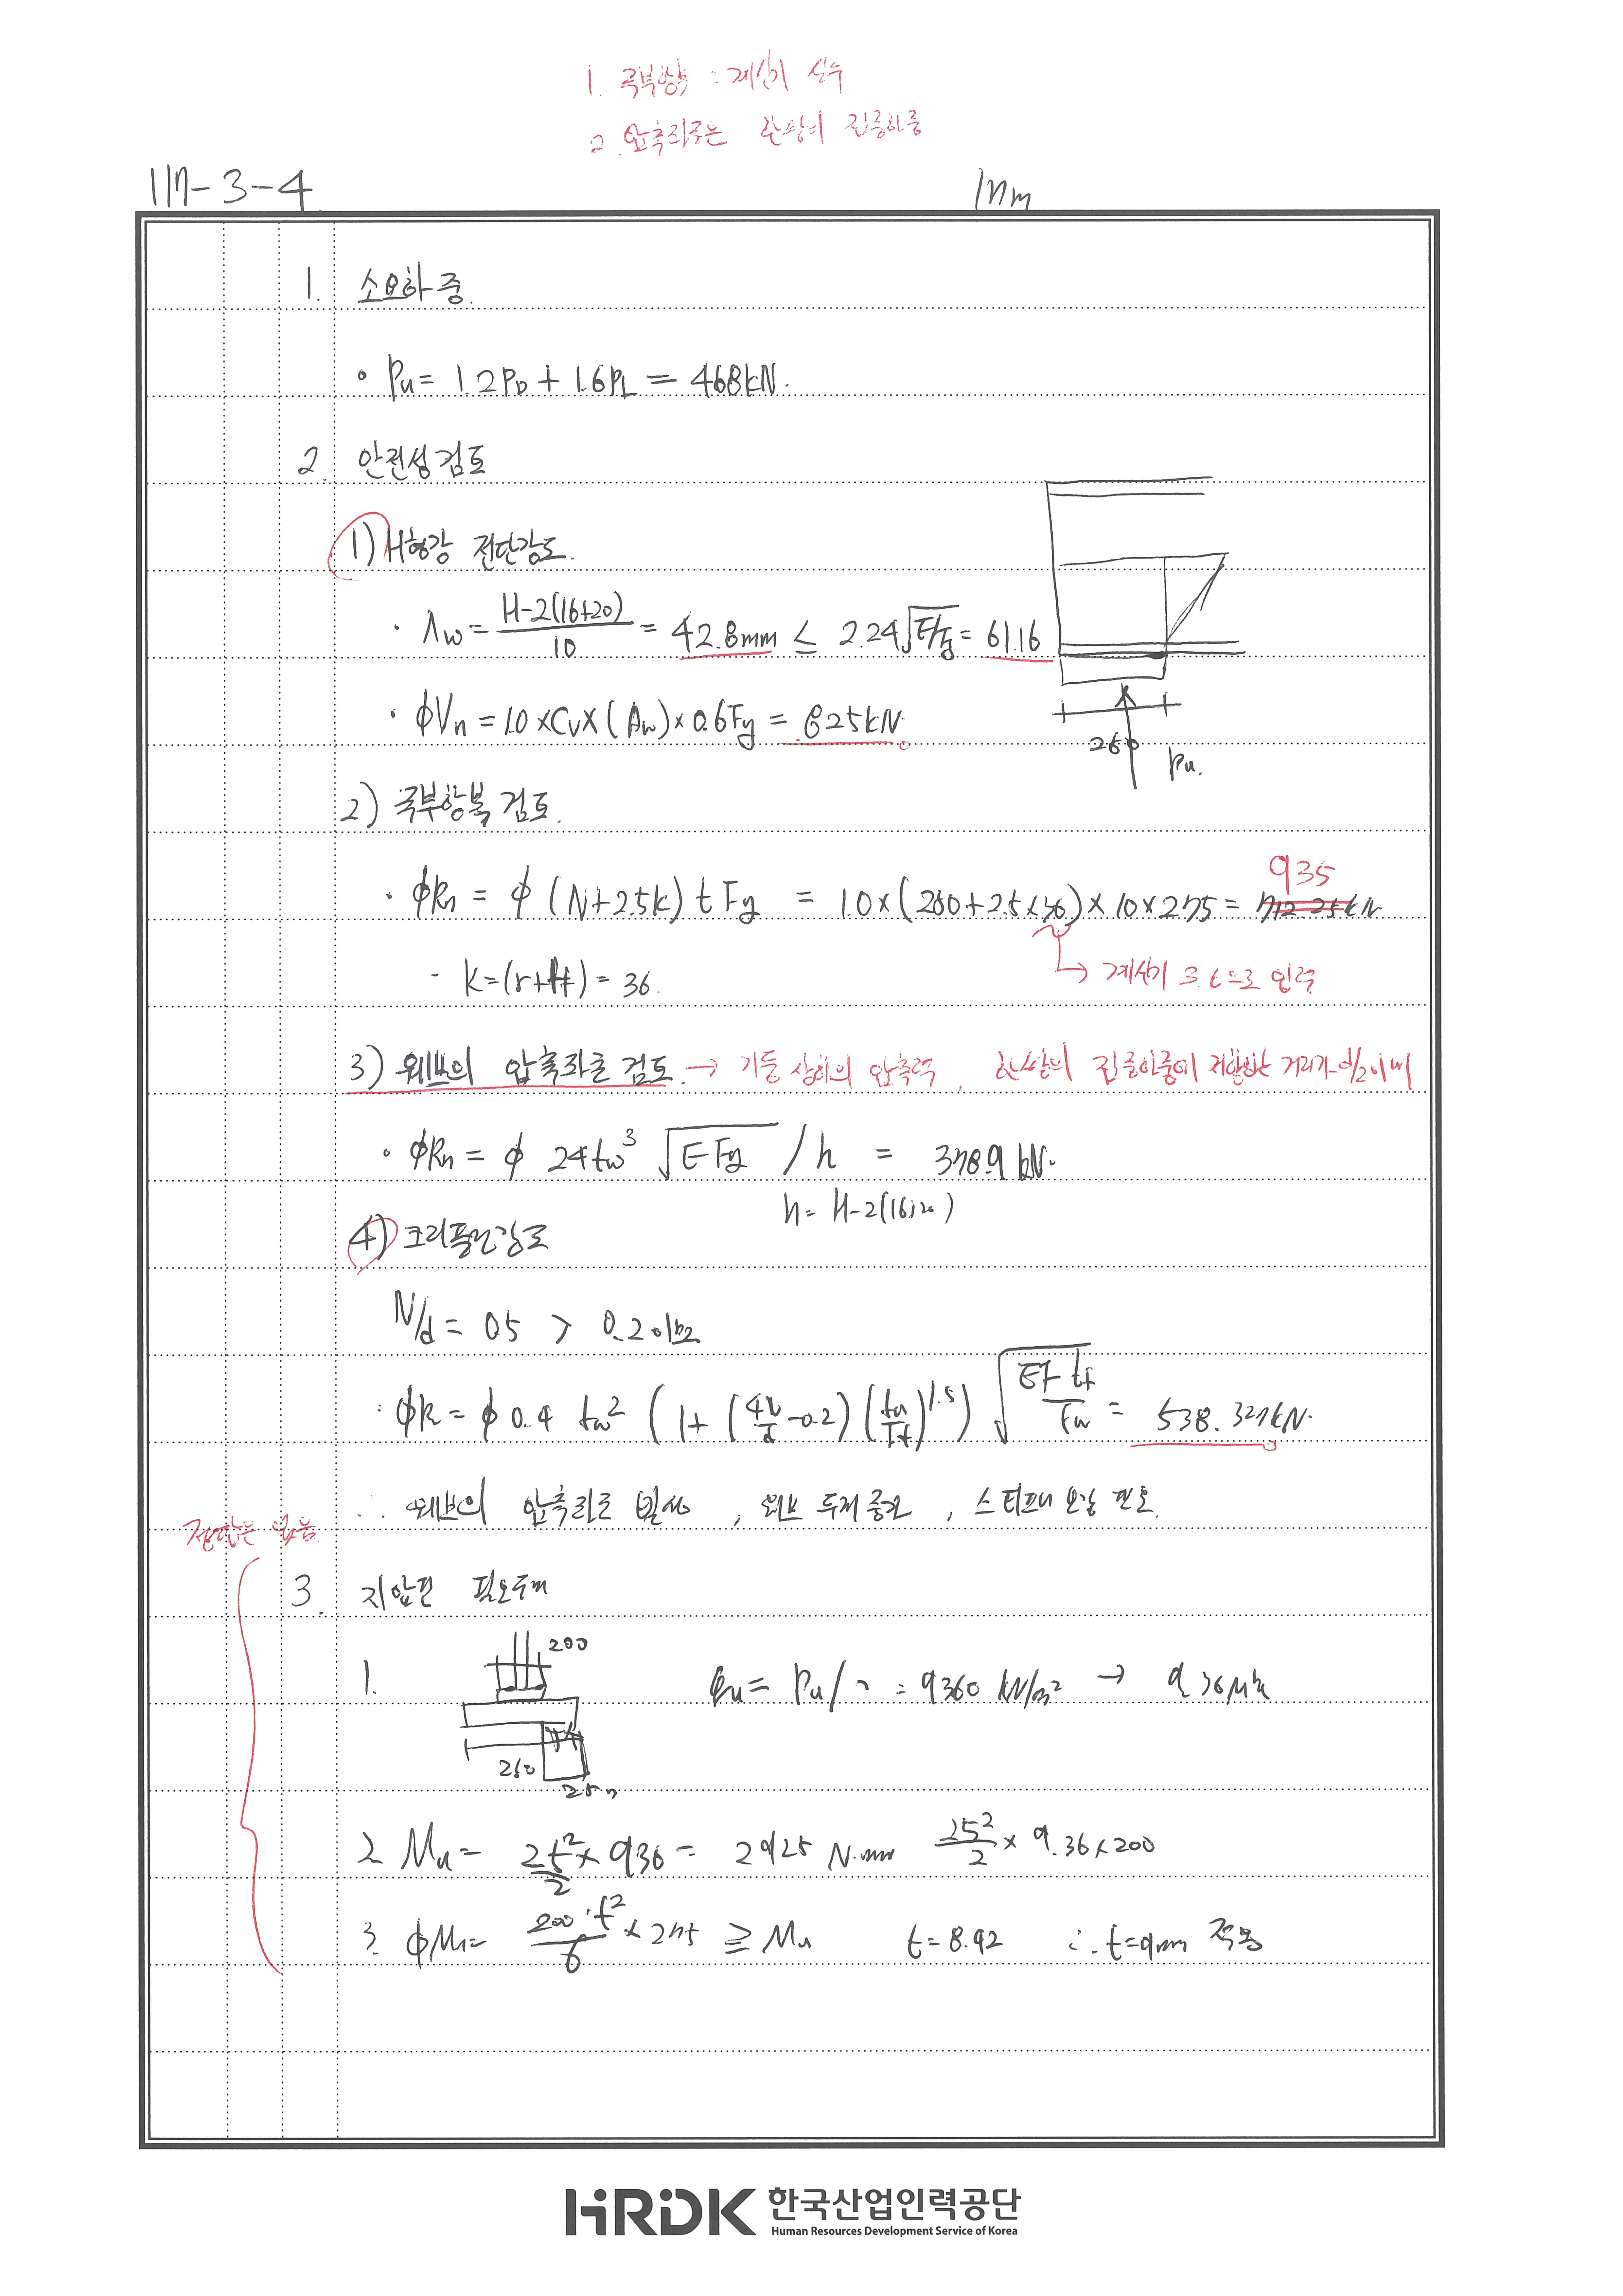 1. 국부항복 : 계산기 실수
2. 압축좌굴은 한쌍의 집중하중
117-3-4
17m
1. 소요하중.
• Pu = 1.2PD + 1.6PL = 468kN.
2. 안전성검토
1) H형강 전단강도.
· λw = H-2(16+20) / 10 = 42.8mm ≤ 2.24√E/Fy = 61.16
· ϕVn = 1.0×Cv×(Aw)×0.6Fy = 825kN.
260 Pu.
2) 국부항복 검토.
935
· ϕRn = ϕ (N+2.5k) t Fy = 1.0×(250+2.5×36)×10×275 = 712.25kN
→ 계산기 3.6으로 입력
- k=(r+tf) = 36.
3) 웨브의 압축좌굴 검토. → 기둥 상하의 압축력, 한쌍의 집중하중이 저항하는 거리가 d/2이내
• ϕRn = ϕ 24tw³ √EFy / h = 378.9 kN.
h = H-2(16+20)
4) 크리플링강도
N/d = 0.5 > 0.2 이므로
· ϕR = ϕ 0.4 tw² (1+(4N/d-0.2)(tw/tf)^1.5) √EF tf/Fw = 538.327kN.
∴ 웨브의 압축좌굴 발생, 웨브 두께 증가, 스티프너 보강 필요.
정답은 없음.
3. 지압판 필요두께
1. 200 qu = Pu/A = 9360 kN/m² → 9.36MPa
260
25
2. Mu = 25²/2 × 936 = 2925 N·mm 25²/2 × 9.36×200
3. ϕMn = 200·t²/6 × 275 ≥ Mu t=8.92 ∴ t=9mm 적용
HRDK 한국산업인력공단
Human Resources Development Service of Korea